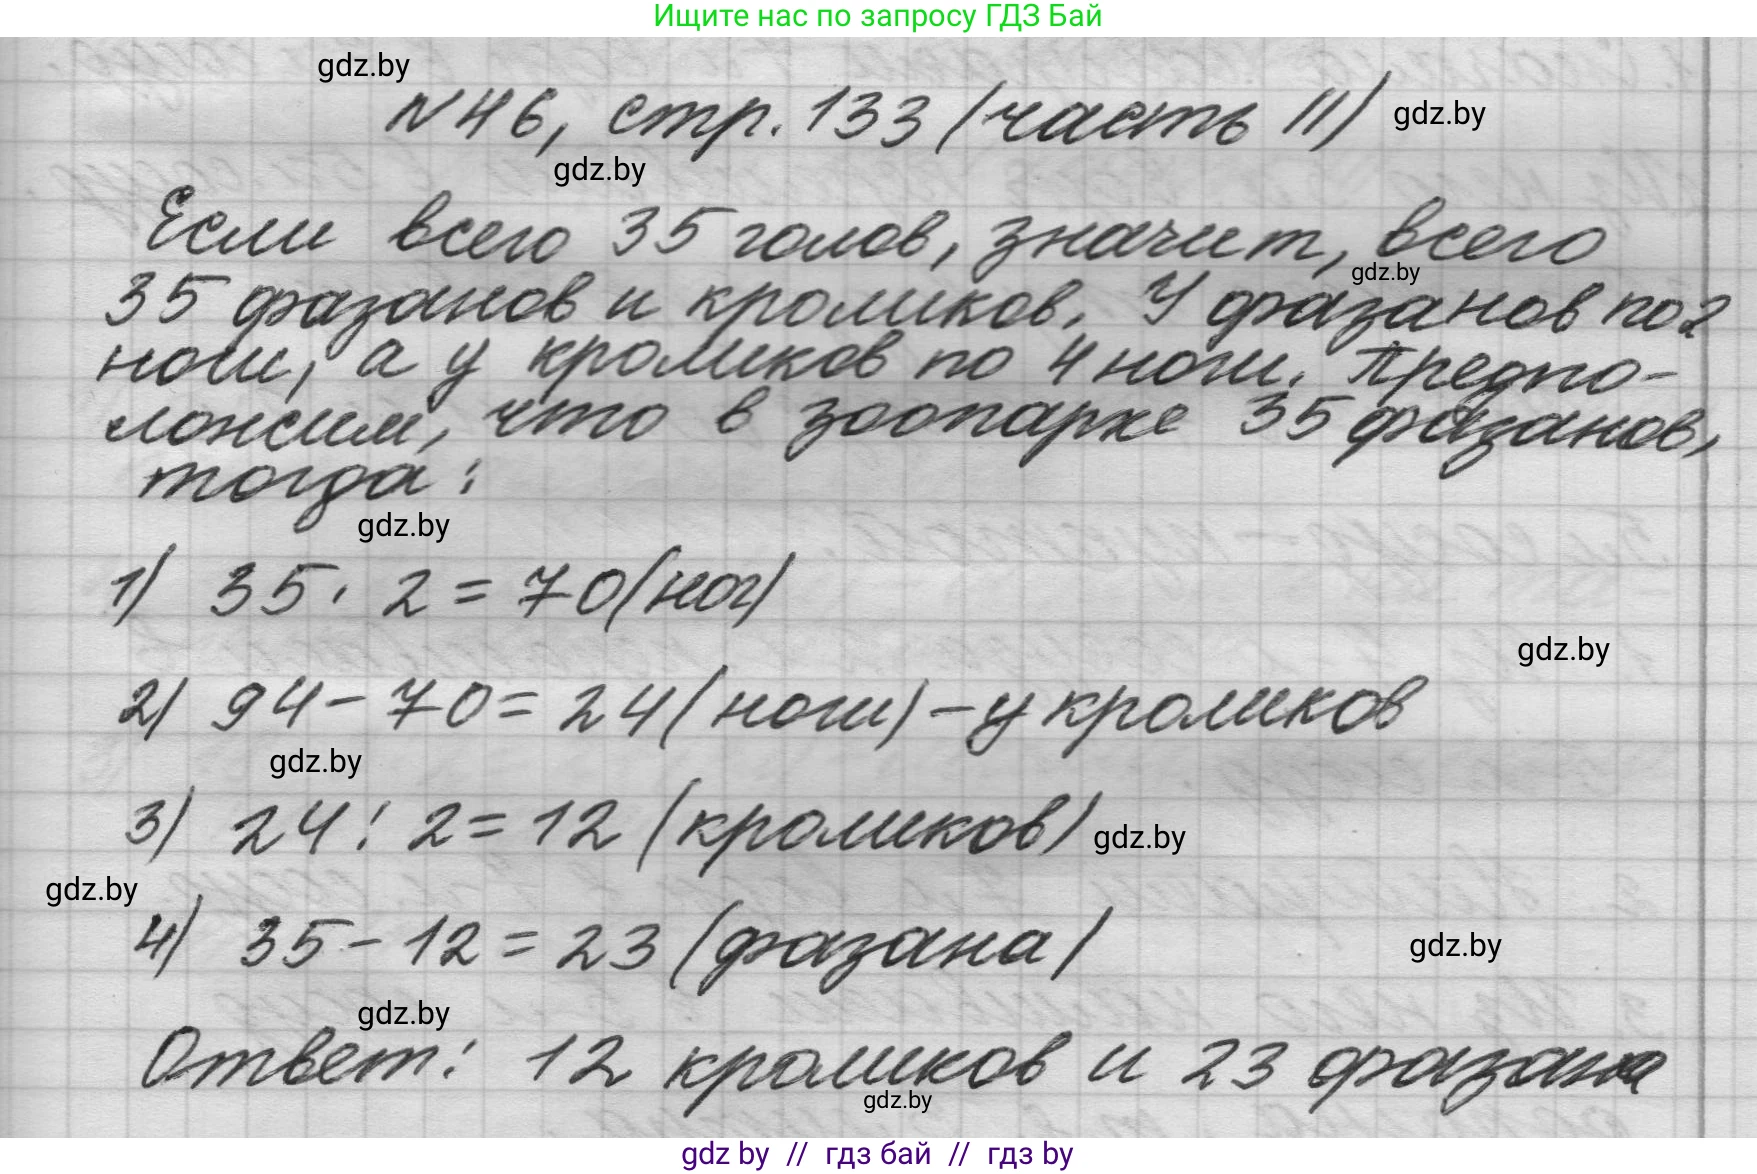 Ищите нас по запросу ГДЗ Бай
gdz.by
№46, стр. 133 (часть II)
gdz.by
gdz.by
Если всего 35 голов, значит, всего
gdz.by
35 фазанов и кроликов. У фазанов по 2
ноги, а у кроликов по 4 ноги. Предпо-
ложим, что в зоопарке 35 фазанов,
тогда:
gdz.by
1) 35 · 2 = 70 (ног)
gdz.by
2) 94 - 70 = 24 (ноги) - у кроликов
gdz.by
3) 24 : 2 = 12 (кроликов)
gdz.by
gdz.by
4) 35 - 12 = 23 (фазана)
gdz.by
gdz.by
Ответ: 12 кроликов и 23 фазана
gdz.by
gdz by // гдз бай // гдз by